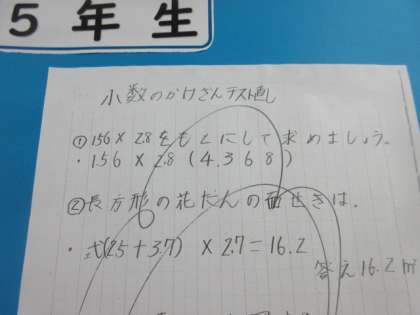 5年生
小数のかけざんテスト直し
①156×2.8をもとにして求めましょう。
・156×2.8(4.368)
②長方形の花だんの面せきは.
・式(2.5+3.7)×2.7=16.2
答え16.2㎡